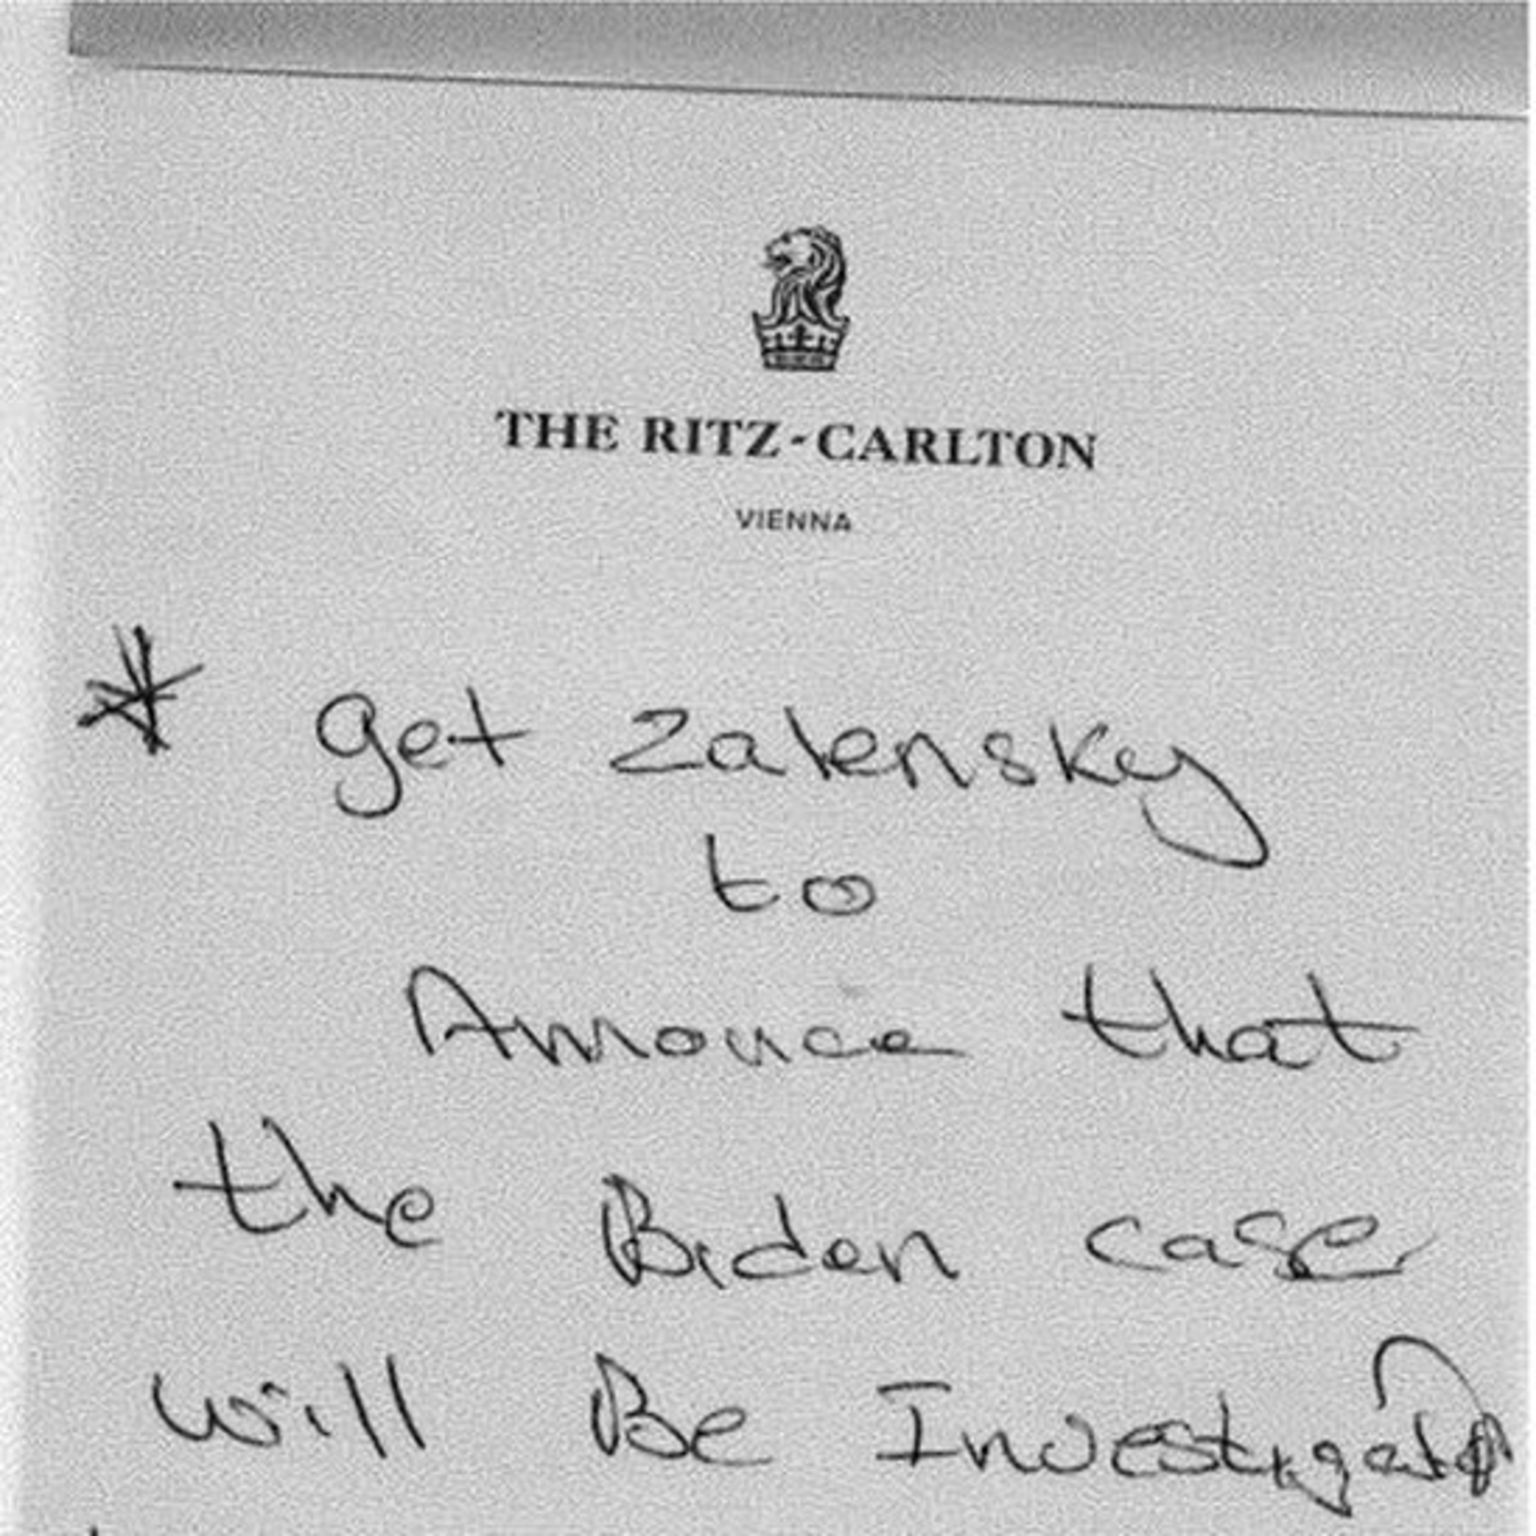 THE RITZ-CARLTON
VIENNA
* get Zalensky
to
Annonce that
the Biden case
will Be Investigated